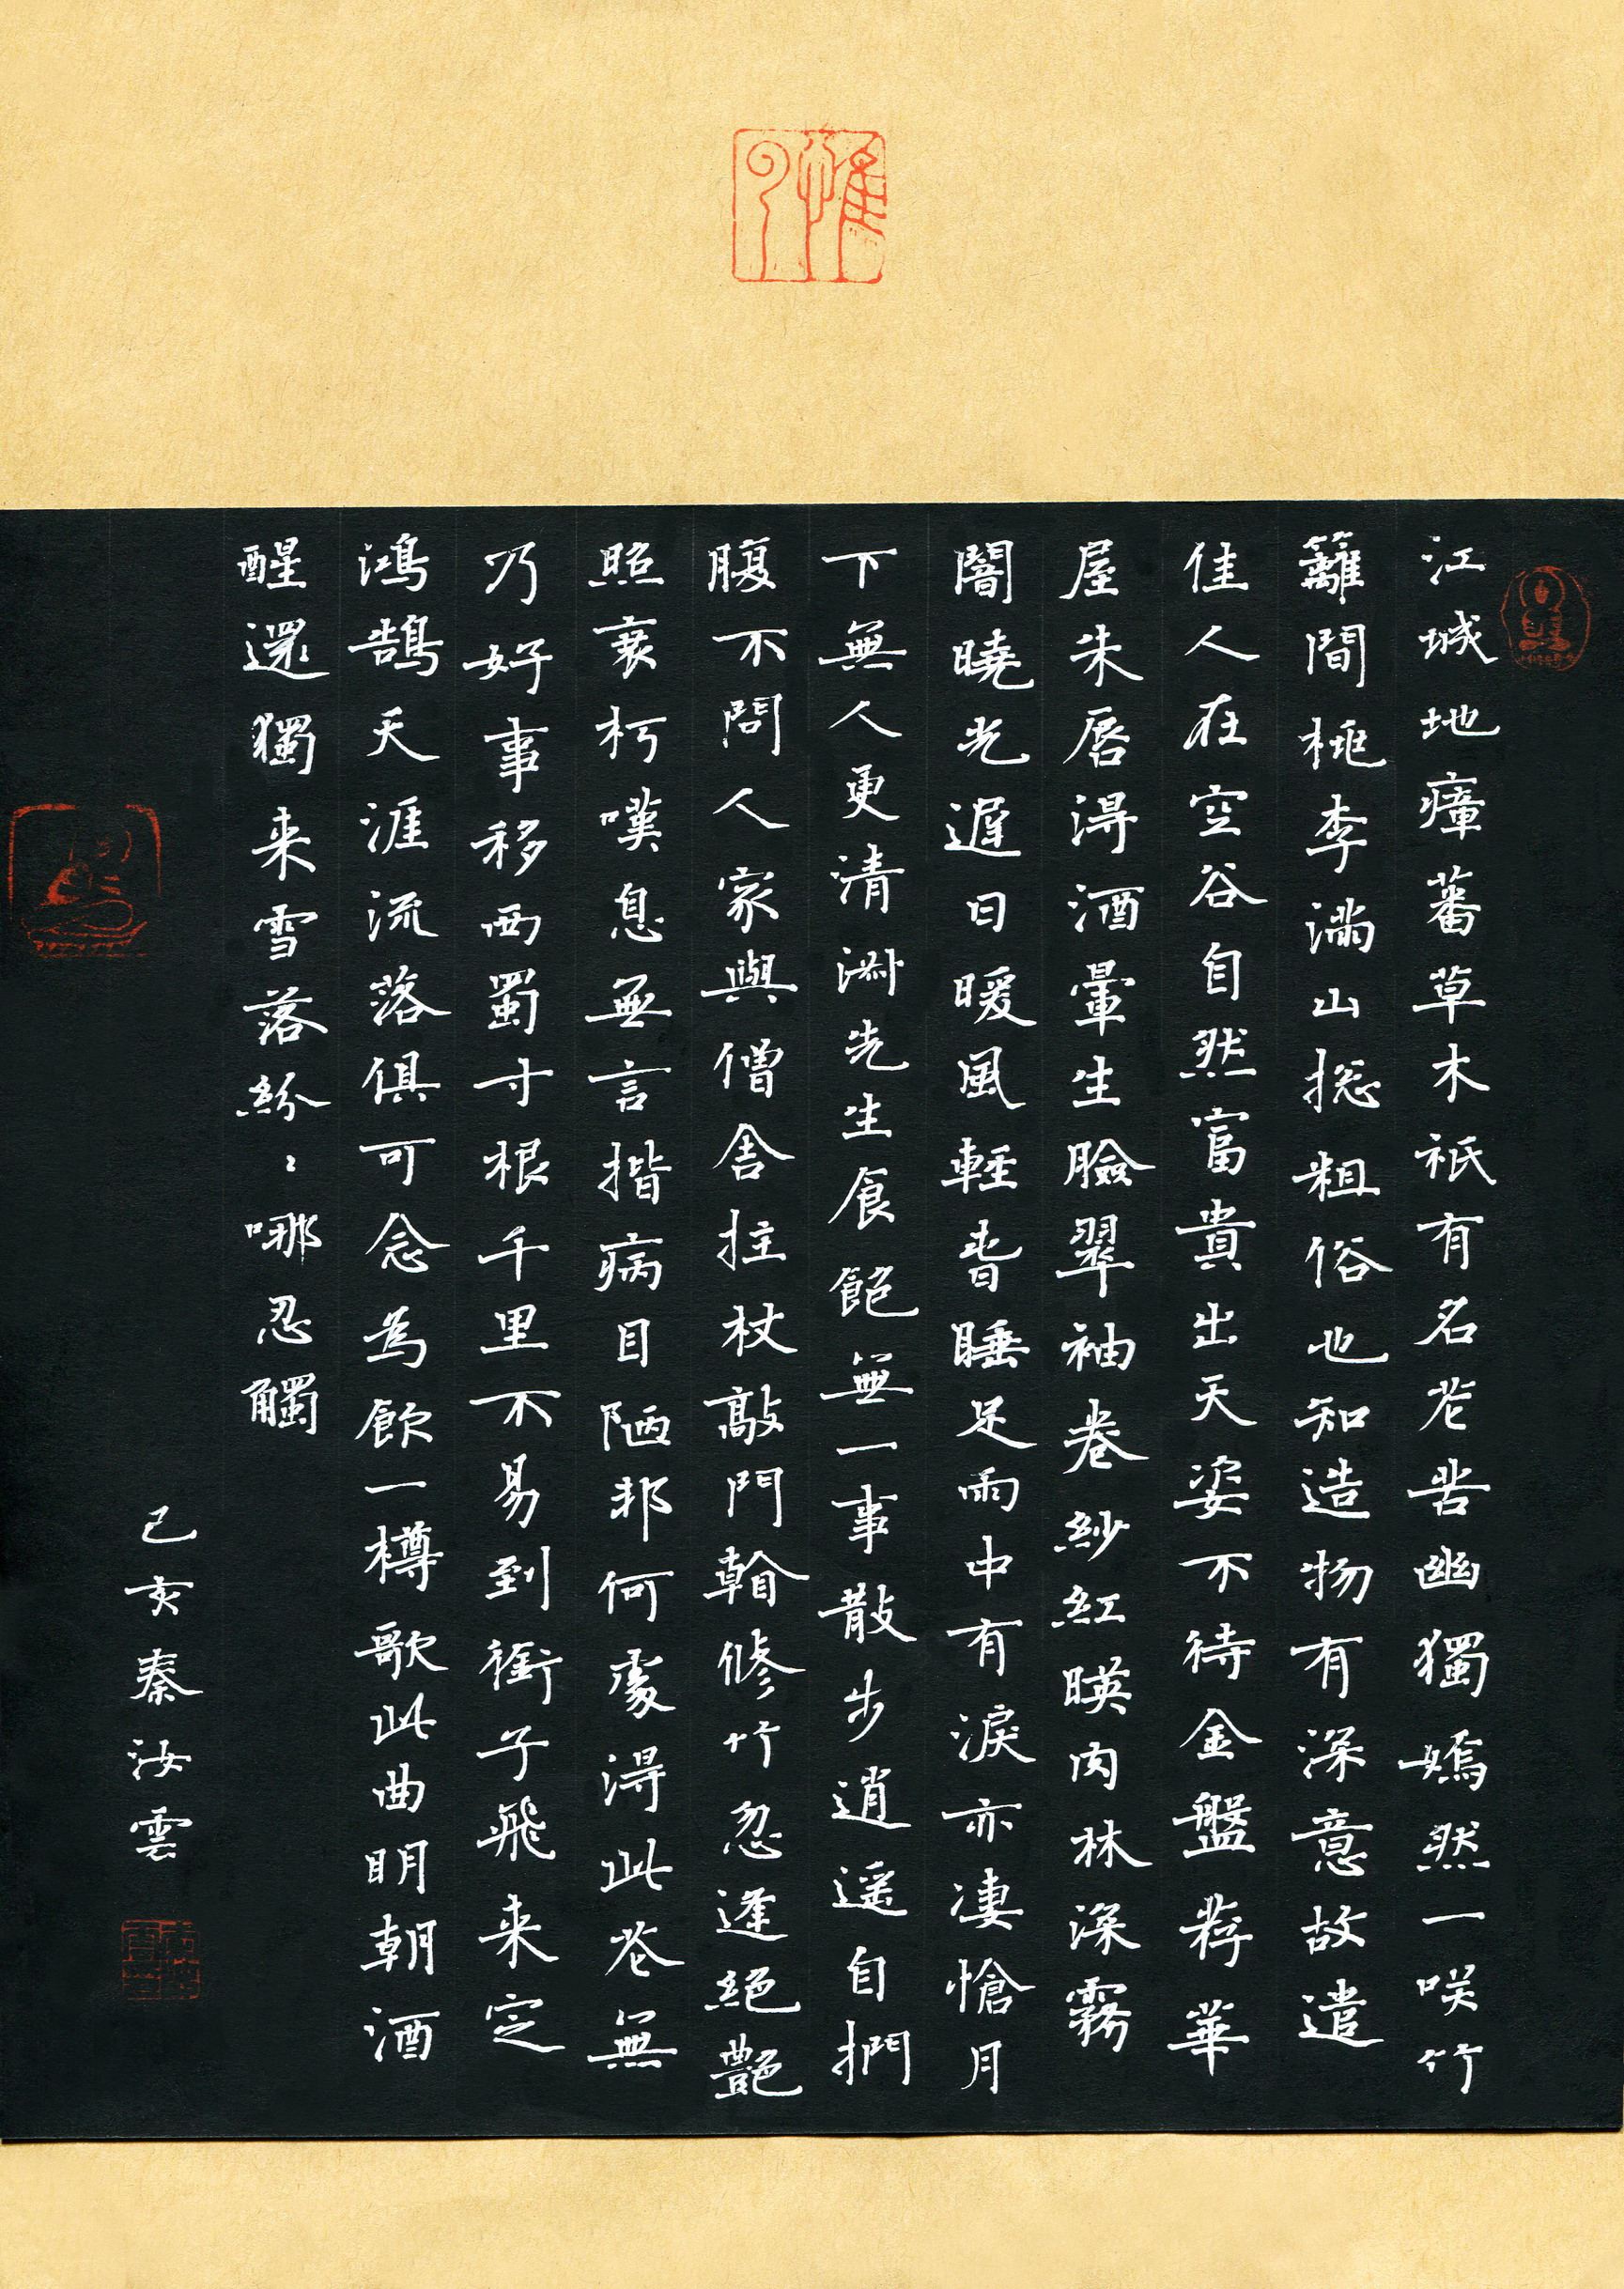 江城地瘴蕃草木祇有名花苦幽獨嫣然一咲竹
籬間桃李滿山揔粗俗也知造物有深意故遣
佳人在空谷自然富貴出天姿不待金盤荐華
屋朱唇淂酒暈生臉翠袖卷紗紅暎肉林深霧
闇曉光遲日暖風輕春睡足雨中有淚亦凄愴月
下無人更清淋先生食飽無一事散步逍遥自捫
腹不問人家與僧舍拄杖敲門㪇修竹忽逢絕艷
照衰朽嘆息無言揩病目陋邦何處淂此花無
乃好事移西蜀寸根千里不易到銜子飛来定
鴻鵠天涯流落俱可念為飲一樽歌此曲明朝酒
醒還獨来雪落紛〻哪忍觸
己亥秦汝雲